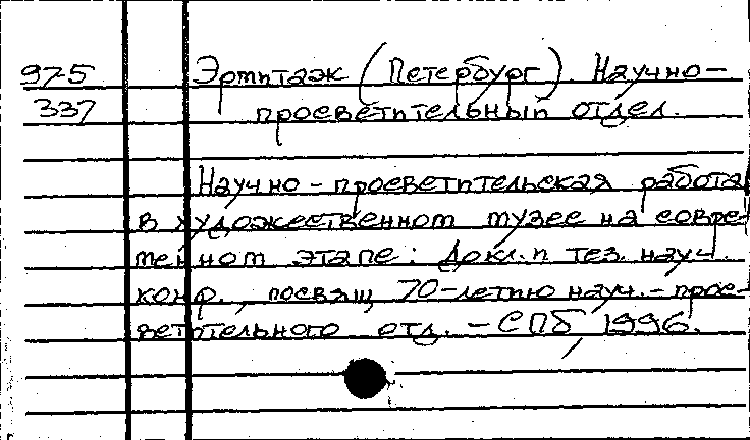 97-5 Эрмитаж (Петербург). Научно-
337 просветительный отдел.
Научно-просветительская работа
в художественном музее на совре-
менном этапе: Докл. и тез. науч.
конф., посвящ. 70-летию науч.-прос-
ветительного отд. - СПб, 1996.